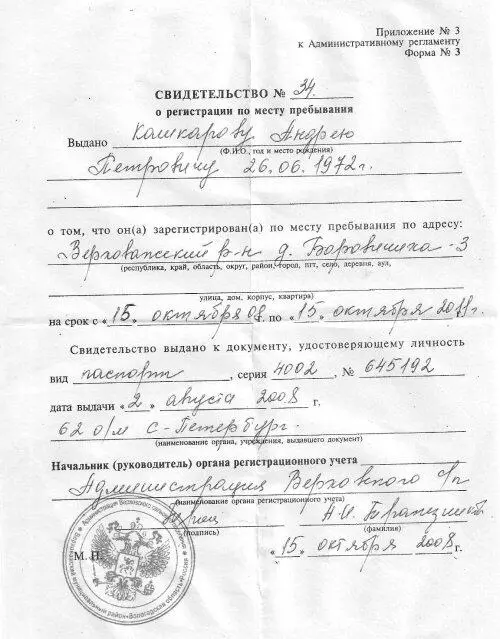 Приложение № 3
к Административному регламенту
Форма № 3
СВИДЕТЕЛЬСТВО № 34
о регистрации по месту пребывания
Выдано Кошкарову Андрею
(Ф.И.О., год и место рождения)
Петровичу 26.06.1972г.
о том, что он(а) зарегистрирован(а) по месту пребывания по адресу:
Верховажский р-н д. Боровичиха - 3
(республика, край, область, округ, район, город, пгт, село, деревня, аул,
улица, дом, корпус, квартира)
на срок с «15» октября 08г. по «15» октября г.
Свидетельство выдано к документу, удостоверяющему личность
вид паспорт, серия 4002, № 645192
дата выдачи «2» августа 2008 г.
62 о/м С-Петербург.
(наименование органа, учреждения, выдавшего документ)
Начальник (руководитель) органа регистрационного учета
Администрация Верховского с/п
(наименование органа регистрационного учета)
А.И.
(подпись) (фамилия)
М. П.
«15» октября 2008г.